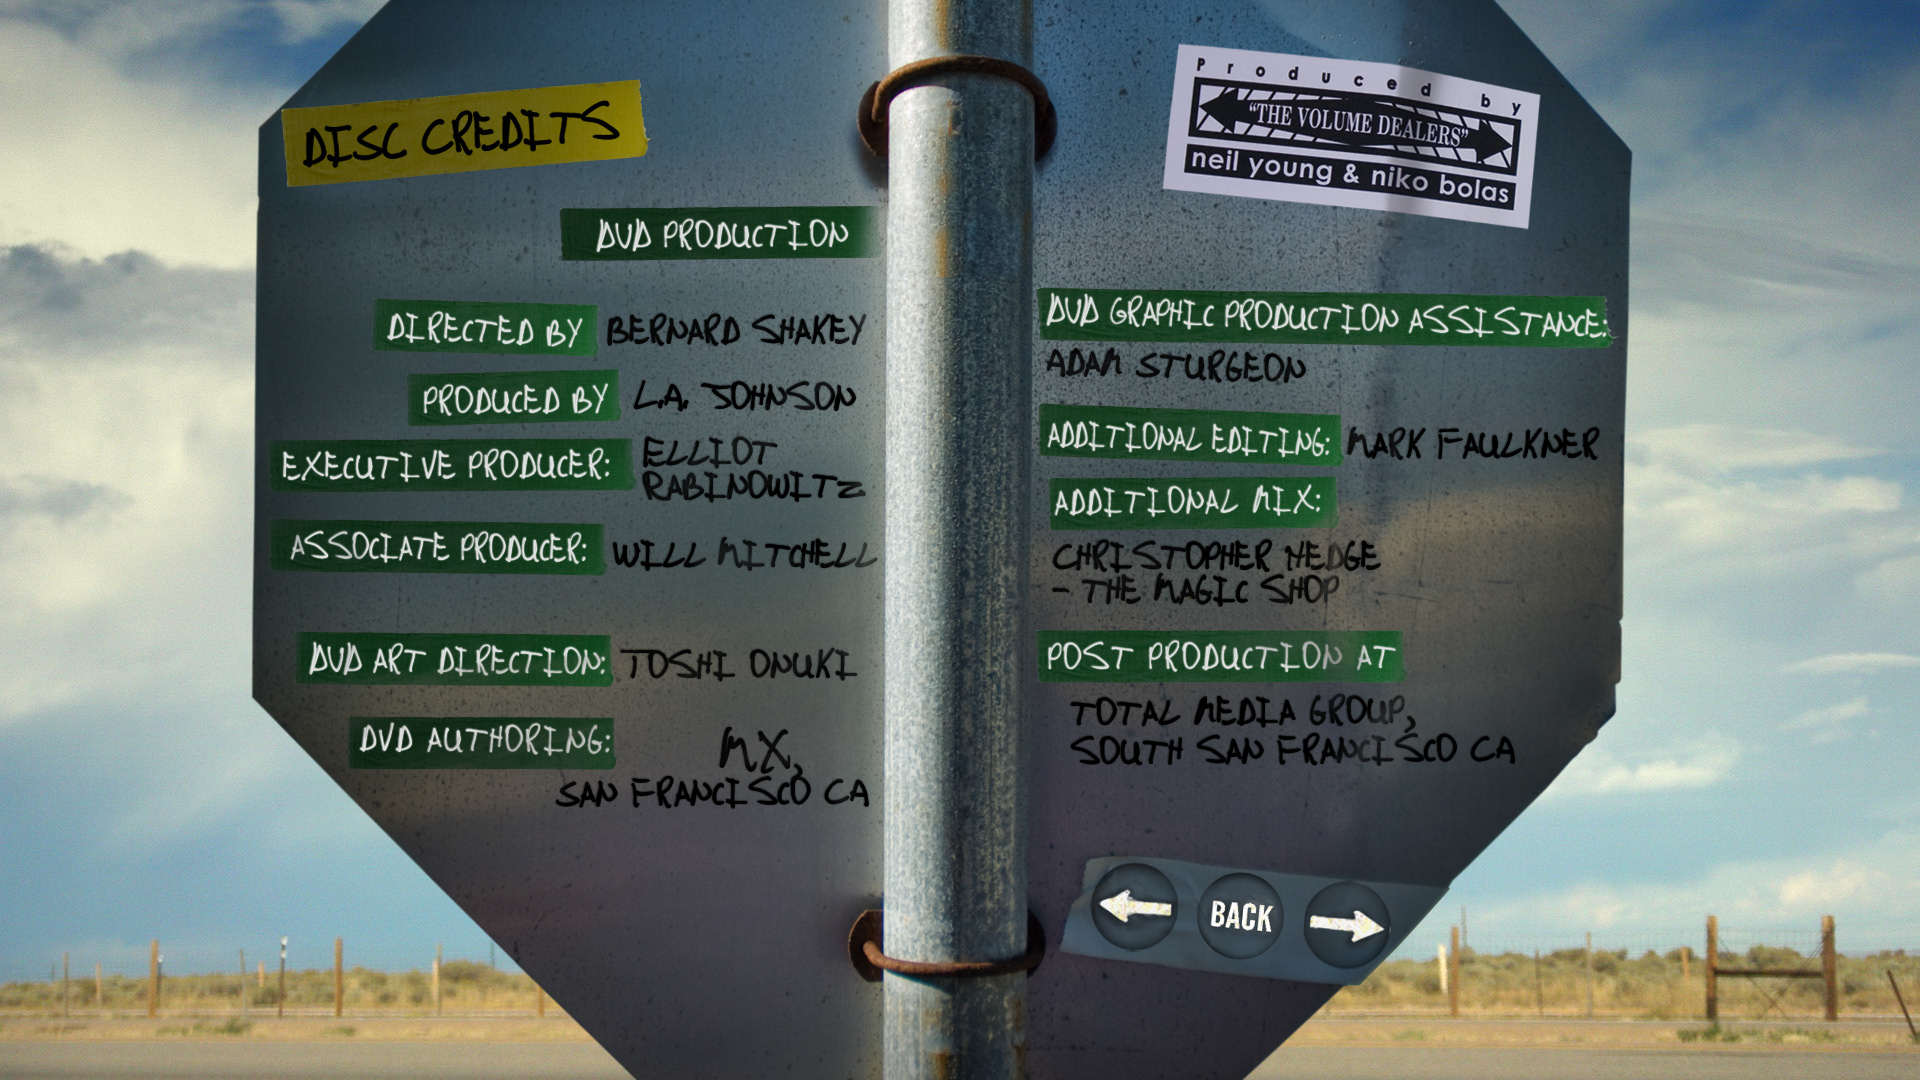 DISC CREDITS
DVD PRODUCTION
DIRECTED BY BERNARD SHAKEY
PRODUCED BY L.A. JOHNSON
EXECUTIVE PRODUCER: ELLIOT
RABINOWITZ
ASSOCIATE PRODUCER: WILL MITCHELL
DVD ART DIRECTION: TOSHI ONUKI
DVD AUTHORING: MX,
SAN FRANCISCO CA
Produced by
"THE VOLUME DEALERS"
neil young & niko bolas
DVD GRAPHIC PRODUCTION ASSISTANCE:
ADAM STURGEON
ADDITIONAL EDITING: MARK FAULKNER
ADDITIONAL MIX:
CHRISTOPHER HEDGE
- THE MAGIC SHOP
POST PRODUCTION AT
TOTAL MEDIA GROUP,
SOUTH SAN FRANCISCO CA
BACK